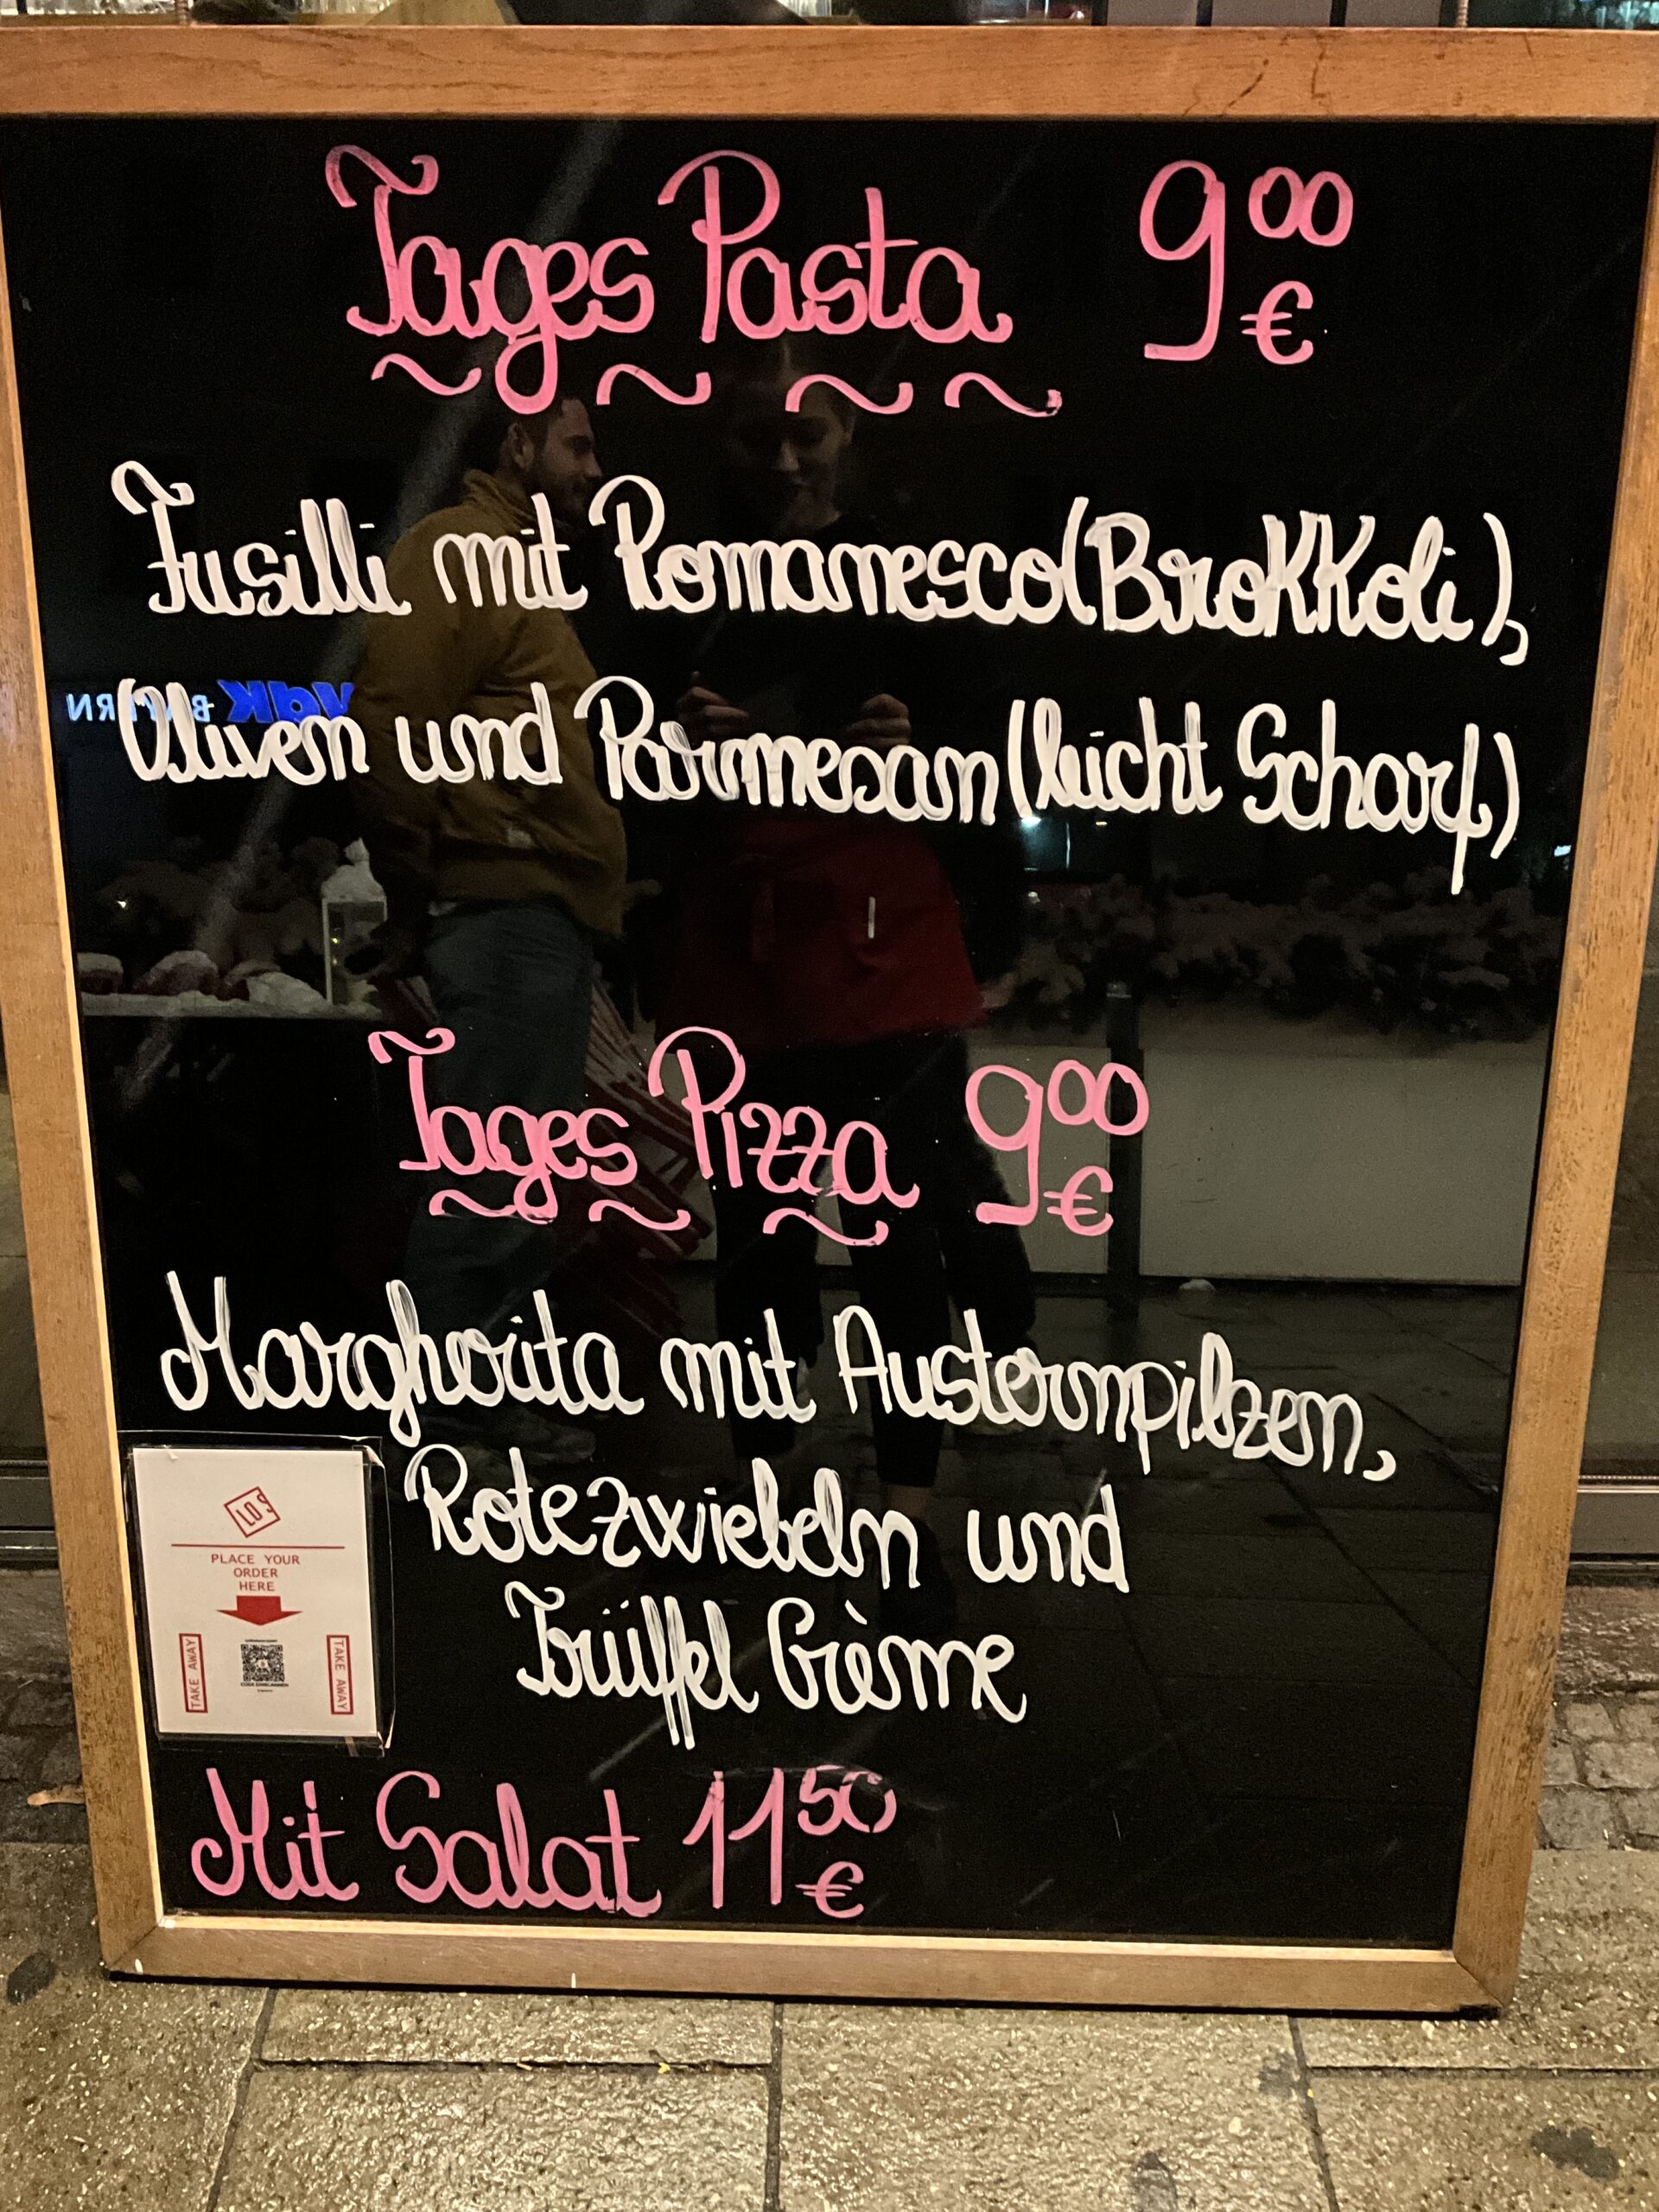 Tages Pasta 9⁰⁰ €
Fusilli mit Romanesco(Brokkoli),
Oliven und Parmesan(leicht Scharf)
Tages Pizza 9⁰⁰ €
Margherita mit Austernpilzen,
Rote Zwiebeln und
Trüffel Crème
LOS
PLACE YOUR
ORDER
HERE
TAKE AWAY
TAKE AWAY
Mit Salat 11⁵⁰ €
VdK BAYERN